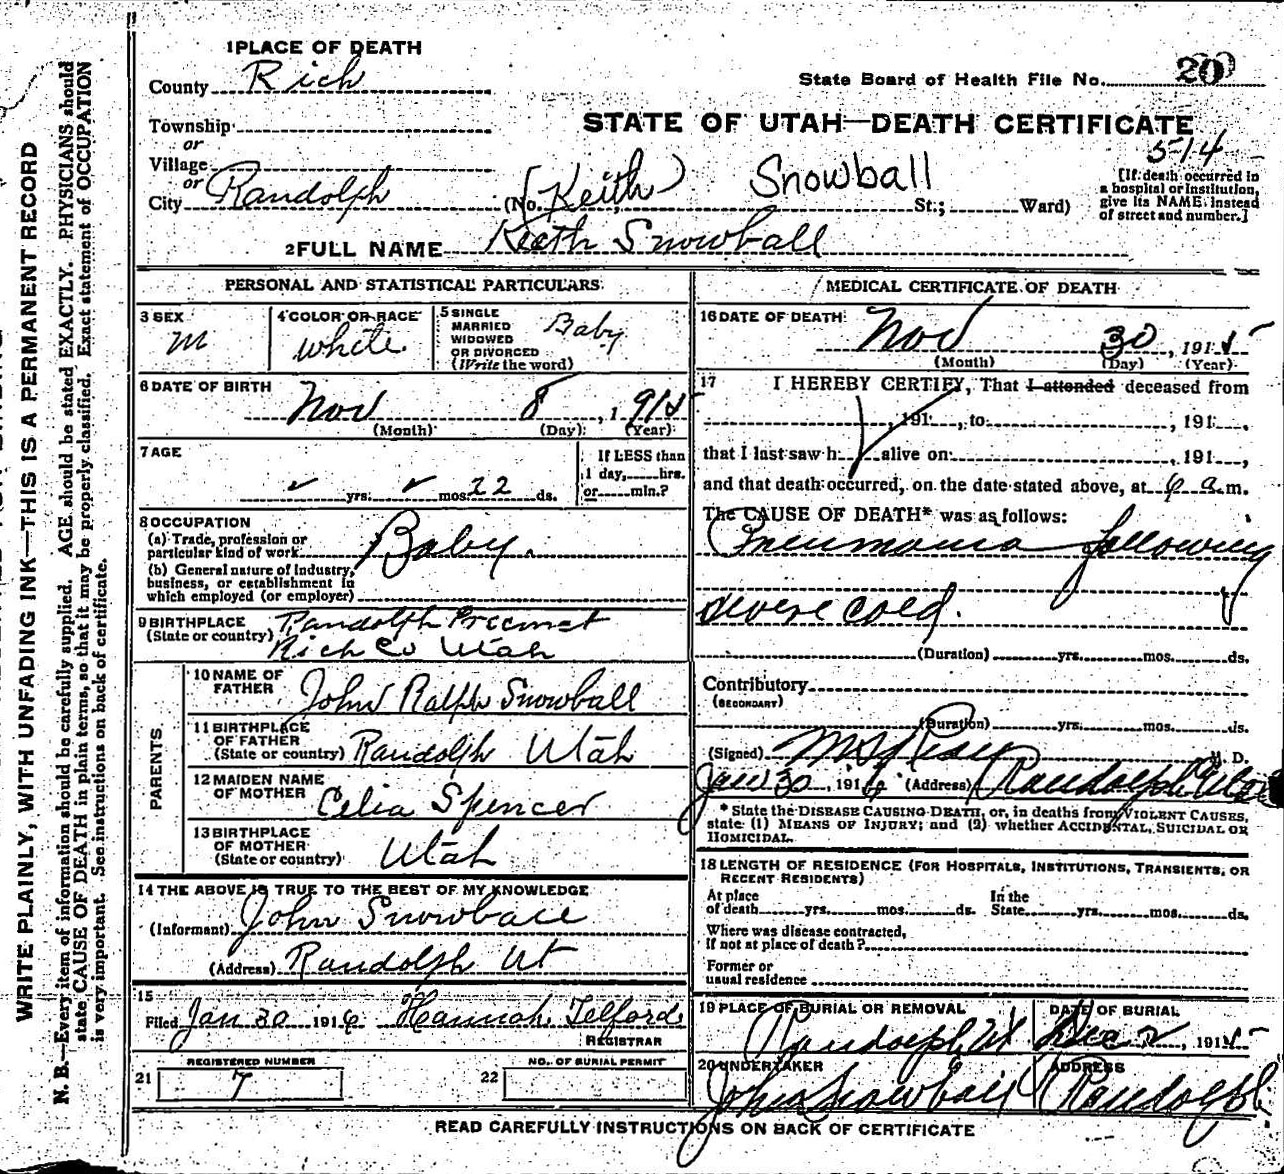 WRITE PLAINLY, WITH UNFADING INK—THIS IS A PERMANENT RECORD
N. B.—Every item of information should be carefully supplied. AGE should be stated EXACTLY. PHYSICIANS should
state CAUSE OF DEATH in plain terms, so that it may be properly classified. Exact statement of OCCUPATION
is very important. See instructions on back of certificate.
1 PLACE OF DEATH
County Rich
State Board of Health File No. 20
Township
or
STATE OF UTAH—DEATH CERTIFICATE
514
Village
or
City Randolph (No. (Keith) Snowball St.; Ward)
[If death occurred in
a hospital or institution,
give its NAME instead
of street and number.]
2 FULL NAME Keith Snowball
PERSONAL AND STATISTICAL PARTICULARS
3 SEX
m
4 COLOR OR RACE
white
5 SINGLE
MARRIED
WIDOWED
OR DIVORCED
(Write the word)
Baby
6 DATE OF BIRTH
Nov 8, 1915
(Month) (Day) (Year)
7 AGE
✓ yrs. ✓ mos. 22 ds.
If LESS than
1 day, hrs.
or min.?
8 OCCUPATION
(a) Trade, profession or
particular kind of work Baby.
(b) General nature of industry,
business, or establishment in
which employed (or employer)
9 BIRTHPLACE
(State or country) Randolph Precinct
Rich Co Utah
PARENTS
10 NAME OF
FATHER John Ralph Snowball
11 BIRTHPLACE
OF FATHER
(State or country) Randolph Utah
12 MAIDEN NAME
OF MOTHER Celia Spencer
13 BIRTHPLACE
OF MOTHER
(State or country) Utah
14 THE ABOVE IS TRUE TO THE BEST OF MY KNOWLEDGE
(Informant) John Snowball
(Address) Randolph Ut
15
Filed Jan 30 1916 Hannah Telford
REGISTRAR
REGISTERED NUMBER
21 7
NO. OF BURIAL PERMIT
22
MEDICAL CERTIFICATE OF DEATH
16 DATE OF DEATH
Nov 30, 1915
(Month) (Day) (Year)
17 I HEREBY CERTIFY, That I attended deceased from
, 191 , to , 191 ,
that I last saw h alive on , 191 ,
and that death occurred, on the date stated above, at 6 a m.
The CAUSE OF DEATH* was as follows:
Pneumonia following
severe cold.
(Duration) yrs. mos. ds.
Contributory
(SECONDARY)
(Duration) yrs. mos. ds.
(Signed) M. D.
Jan 30, 1916 (Address) Randolph Utah
* State the DISEASE CAUSING DEATH, or, in deaths from VIOLENT CAUSES,
state (1) MEANS OF INJURY; and (2) whether ACCIDENTAL, SUICIDAL OR
HOMICIDAL.
18 LENGTH OF RESIDENCE (FOR HOSPITALS, INSTITUTIONS, TRANSIENTS, OR
RECENT RESIDENTS)
At place
of death yrs. mos. ds.
In the
State yrs. mos. ds.
Where was disease contracted,
if not at place of death?
Former or
usual residence
19 PLACE OF BURIAL OR REMOVAL
Randolph Ut
DATE OF BURIAL
Dec 2, 1915
20 UNDERTAKER
John Snowball
ADDRESS
Randolph
READ CAREFULLY INSTRUCTIONS ON BACK OF CERTIFICATE